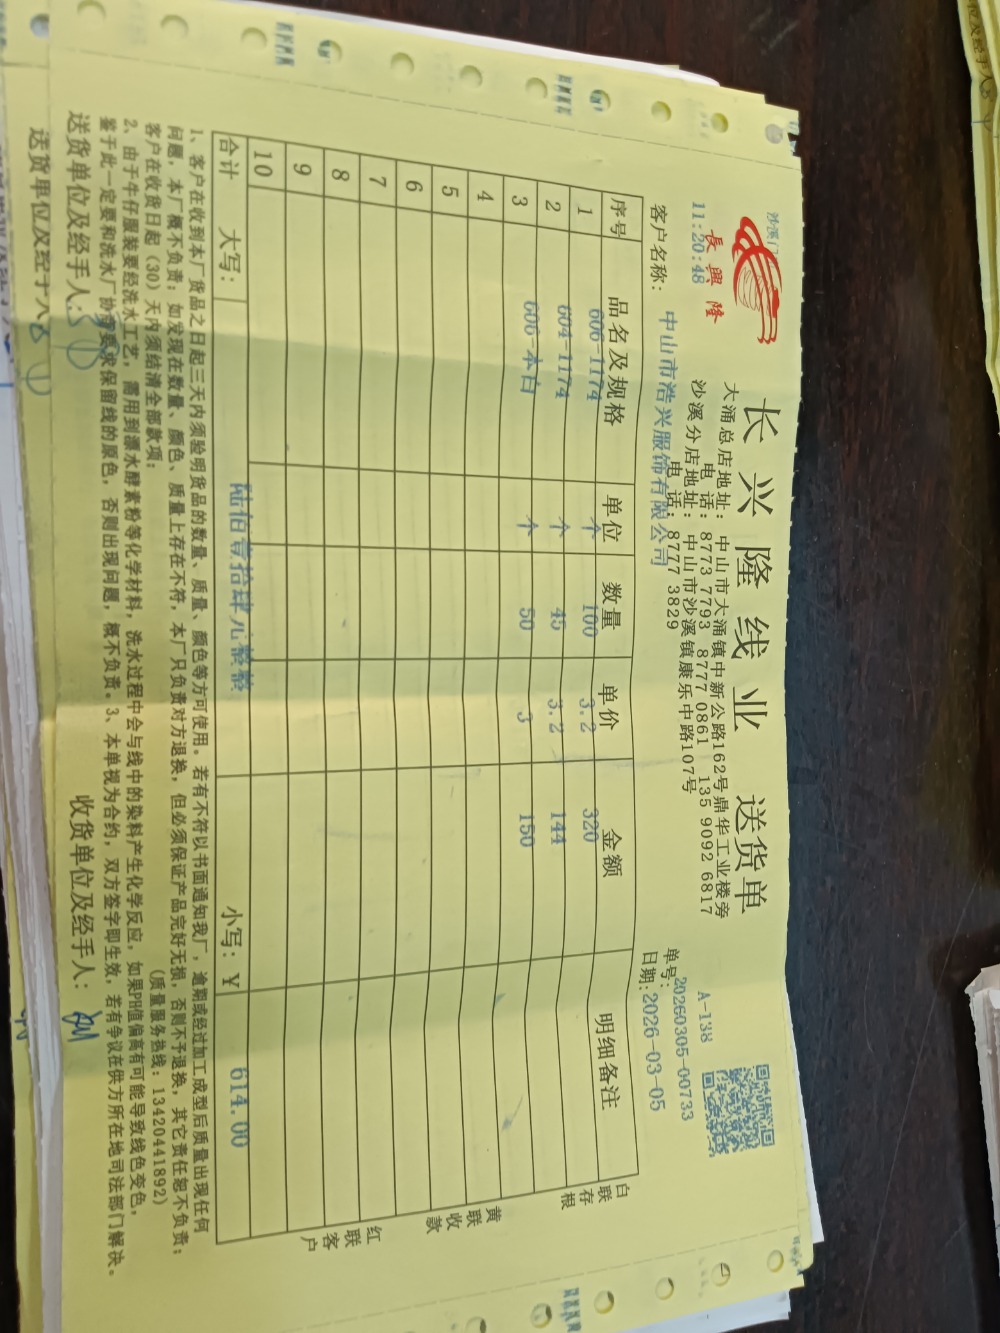 沙溪门
長興隆
11:20:48
长兴隆线业 送货单
A-138
大涌总店地址：中山市大涌镇中新公路162号鼎华工业楼旁
电 话：8773 7793 8777 0861 135 9092 6817
沙溪分店地址：中山市沙溪镇康乐中路107号
电 话：8777 3829
单号：20260305-00733
客户名称： 中山市浩兴服饰有限公司
日期：2026-03-05
序号 品名及规格 单位 数量 单价 金额 明细备注
1 606-1174 个 100 3.2 320
2 604-1174 个 45 3.2 144
3 606-本白 个 50 3 150
4
5
6
7
8
9
10
合计 大写： 陆佰壹拾肆元整 小写：￥ 614.00
白联存根
黄联收款
红联客户
1、客户在收到本厂货品之日起三天内须验明货品的数量、质量、颜色等方可使用。若有不符以书面通知我厂，逾期或经过加工成型后质量出现任何
问题，本厂概不负责；如发现在数量、颜色、质量上存在不符，本厂只负责对方退换，但必须保证产品完好无损，否则不予退换，其它责任恕不负责；
客户在收货日起（30）天内须结清全部款项； （质量服务热线：13420441892）
2、由于牛仔服装要经洗水工艺，需用到漂水酵素粉等化学材料，洗水过程中会与线中的染料产生化学反应，如果PH值偏高有可能导致线色变色，
鉴于此一定要和洗水厂协商要求保留线的原色，否则出现问题，概不负责。3、本单视为合约，双方签字即生效，若有争议在供方所在地司法部门解决。
送货单位及经手人： 收货单位及经手人：
送货单位及经手人